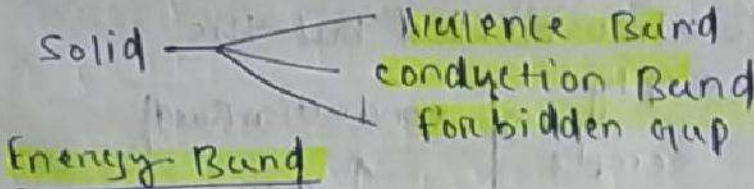 Valence Band
Solid
conduction Band
forbidden gap
Energy Band